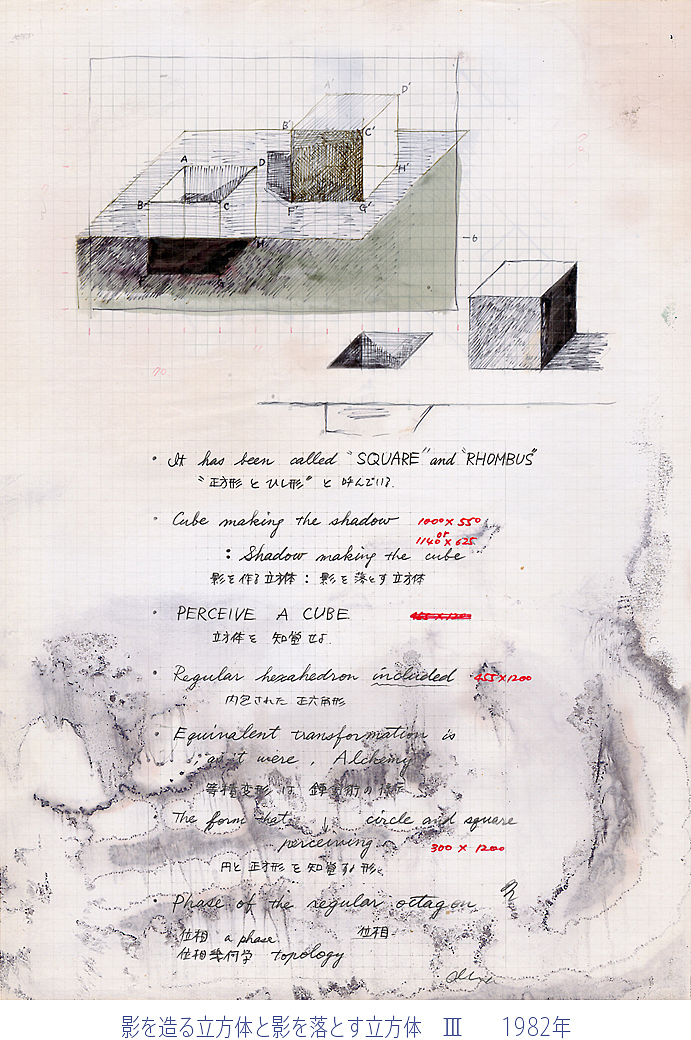 A' D'
B' C'
A D H'
B C F' G'
H
F G
6
• It has been called "SQUARE" and "RHOMBUS"
"正方形 と ひし形" と 呼んでいる.
• Cube making the shadow 1000 × 550
or
1140 × 625
: Shadow making the cube
影を作る立方体 : 影を落とす立方体
• PERCEIVE A CUBE.
立方体を 知覚せよ.
• Regular hexahedron included 455 × 1200
内包された 正六角形
• Equivalent transformation is
as it were, Alchemy
等積変形は 錬金術の
The form that circle and square
perceiving 300 × 1200
円と 正方形を 知覚する形.
• Phase of the regular octagon
位相 a phase 位相
位相幾何学 topology
影を造る立方体と影を落とす立方体 Ⅲ 1982年